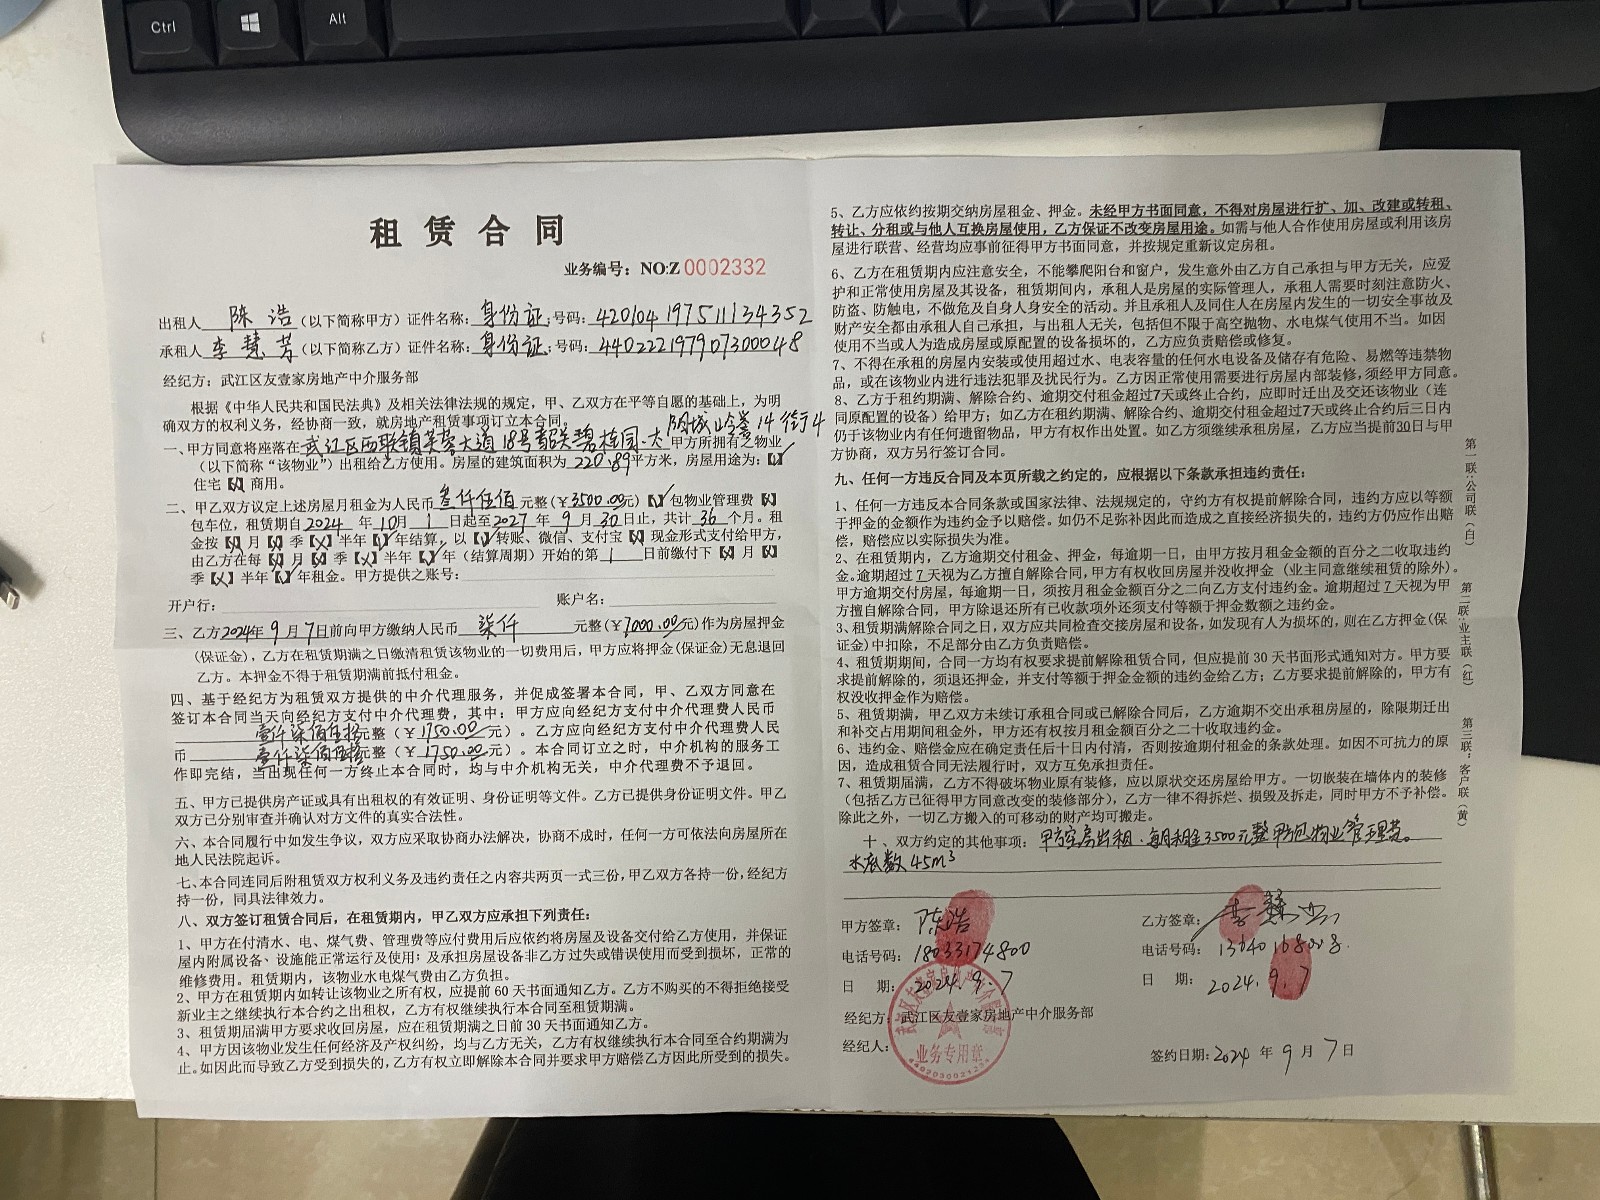 Ctrl
Alt
租赁合同
业务编号：NO:Z 0002332
出租人 陈浩（以下简称甲方）证件名称：身份证；号码：420104197511134352
承租人 李慧芳（以下简称乙方）证件名称：身份证；号码：440222197907300048
经纪方：武江区友壹家房地产中介服务部
根据《中华人民共和国民法典》及相关法律法规的规定，甲、乙双方在平等自愿的基础上，为明
确双方的权利义务，经协商一致，就房地产租赁事项订立本合同。
14街4
一、甲方同意将座落在武江区西联镇芙蓉大道18号 碧桂园·太阳城 甲方所拥有之物业
（以下简称“该物业”）出租给乙方使用。房屋的建筑面积为 220.89平方米，房屋用途为：【✓】
住宅【×】商用。
二、甲乙双方议定上述房屋月租金为人民币 叁仟伍佰 元整（¥3500.00元）【✓】包物业管理费【×】
包车位，租赁期自2024年10月1日起至2027年9月30日止，共计36个月。租
金按【×】月【×】季【×】半年【✓】年结算，以【✓】转账、微信、支付宝【×】现金形式支付给甲方，
由乙方在每【×】月【×】季【×】半年【✓】年（结算周期）开始的第 1 日前缴付下【×】月【×】
季【×】半年【✓】年租金。甲方提供之账号：
开户行： 账户名：
三、乙方2024年9月7日前向甲方缴纳人民币 柒仟 元整（¥7000.00元）作为房屋押金
（保证金），乙方在租赁期满之日缴清租赁该物业的一切费用后，甲方应将押金（保证金）无息退回
乙方。本押金不得于租赁期满前抵付租金。
四、基于经纪方为租赁双方提供的中介代理服务，并促成签署本合同，甲、乙双方同意在
签订本合同当天向经纪方支付中介代理费，其中：甲方应向经纪方支付中介代理费人民币
壹仟柒佰伍拾元整（¥1750.00元）。乙方应向经纪方支付中介代理费人民
币 壹仟柒佰伍拾元整（¥1750.00元）。本合同订立之时，中介机构的服务工
作即完结，当出现任何一方终止本合同时，均与中介机构无关，中介代理费不予退回。
五、甲方已提供房产证或具有出租权的有效证明、身份证明等文件。乙方已提供身份证明文件。甲乙
双方已分别审查并确认对方文件的真实合法性。
六、本合同履行中如发生争议，双方应采取协商办法解决，协商不成时，任何一方可依法向房屋所在
地人民法院起诉。
七、本合同连同后附租赁双方权利义务及违约责任之内容共两页一式三份，甲乙双方各持一份，经纪方
持一份，同具法律效力。
八、双方签订租赁合同后，在租赁期内，甲乙双方应承担下列责任：
1、甲方在付清水、电、煤气费、管理费等应付费用后应依约将房屋及设备交付给乙方使用，并保证
屋内附属设备、设施能正常运行及使用；及承担房屋设备非乙方过失或错误使用而受到损坏，正常的
维修费用。租赁期内，该物业水电煤气费由乙方负担。
2、甲方在租赁期内如转让该物业之所有权，应提前60天书面通知乙方。乙方不购买的不得拒绝接受
新业主之继续执行本合约之出租权，乙方有权继续执行本合同至租赁期满。
3、租赁期届满甲方要求收回房屋，应在租赁期满之日前30天书面通知乙方。
4、甲方因该物业发生任何经济及产权纠纷，均与乙方无关，乙方有权继续执行本合同至合约期满为
止。如因此而导致乙方受到损失的，乙方有权立即解除本合同并要求甲方赔偿乙方因此所受到的损失。
5、乙方应依约按期交纳房屋租金、押金。未经甲方书面同意，不得对房屋进行扩、加、改建或转租、
转让、分租或与他人互换房屋使用，乙方保证不改变房屋用途。如需与他人合作使用房屋或利用该房
屋进行联营、经营均应事前征得甲方书面同意，并按规定重新议定房租。
6、乙方在租赁期内应注意安全，不能攀爬阳台和窗户，发生意外由乙方自己承担与甲方无关，应爱
护和正常使用房屋及其设备，租赁期间内，承租人是房屋的实际管理人，承租人需要时刻注意防火、
防盗、防触电，不做危及自身人身安全的活动。并且承租人及同住人在房屋内发生的一切安全事故及
财产安全都由承租人自己承担，与出租人无关，包括但不限于高空抛物、水电煤气使用不当。如因
使用不当或人为造成房屋或原配置的设备损坏的，乙方应负责赔偿或修复。
7、不得在承租的房屋内安装或使用超过水、电表容量的任何水电设备及储存有危险、易燃等违禁物
品，或在该物业内进行违法犯罪及扰民行为。乙方因正常使用需要进行房屋内部装修，须经甲方同意。
8、乙方于租约期满、解除合约、逾期交付租金超过7天或终止合约，应即时迁出及交还该物业（连
同原配置的设备）给甲方；如乙方在租约期满、解除合约、逾期交付租金超过7天或终止合约后三日内
仍于该物业内有任何遗留物品，甲方有权作出处置。如乙方须继续承租房屋，乙方应当提前30日与甲
方协商，双方另行签订合同。
九、任何一方违反合同及本页所载之约定的，应根据以下条款承担违约责任：
1、任何一方违反本合同条款或国家法律、法规规定的，守约方有权提前解除合同，违约方应以等额
于押金的金额作为违约金予以赔偿。如仍不足弥补因此而造成之直接经济损失的，违约方仍应作出赔
偿，赔偿应以实际损失为准。
2、在租赁期内，乙方逾期交付租金、押金，每逾期一日，由甲方按月租金金额的百分之二收取违约
金。逾期超过7天视为乙方擅自解除合同，甲方有权收回房屋并没收押金（业主同意继续租赁的除外）。
甲方逾期交付房屋，每逾期一日，须按月租金金额百分之二向乙方支付违约金。逾期超过7天视为甲
方擅自解除合同，甲方除退还所有已收款项外还须支付等额于押金数额之违约金。
3、租赁期满解除合同之日，双方应共同检查交接房屋和设备，如发现有人为损坏的，则在乙方押金（保
证金）中扣除，不足部分由乙方负责赔偿。
4、租赁期期间，合同一方均有权要求提前解除租赁合同，但应提前30天书面形式通知对方。甲方要
求提前解除的，须退还押金，并支付等额于押金金额的违约金给乙方；乙方要求提前解除的，甲方有
权没收押金作为赔偿。
5、租赁期满，甲乙双方未续订承租合同或已解除合同后，乙方逾期不交出承租房屋的，除限期迁出
和补交占用期间租金外，甲方还有权按月租金额百分之二十收取违约金。
6、违约金、赔偿金应在确定责任后十日内付清，否则按逾期付租金的条款处理。如因不可抗力的原
因，造成租赁合同无法履行时，双方互免承担责任。
7、租赁期届满，乙方不得破坏物业原有装修，应以原状交还房屋给甲方。一切嵌装在墙体内的装修
（包括乙方已征得甲方同意改变的装修部分），乙方一律不得拆烂、损毁及拆走，同时甲方不予补偿。
除此之外，一切乙方搬入的可移动的财产均可搬走。
十、双方约定的其他事项：甲方空房出租。每月租金3500元整 甲方包物业管理费。
水底数45m³
甲方签章：陈浩
电话号码：18033174800
日 期：2024.9.7
经纪方：武江区友壹家房地产中介服务部
经纪人：
业务专用章
乙方签章：李慧芳
电话号码：13640168008
日 期：2024.9.7
签约日期：2024年9月7日
第一联：公司联（白）
第二联：业主联（红）
第三联：客户联（黄）